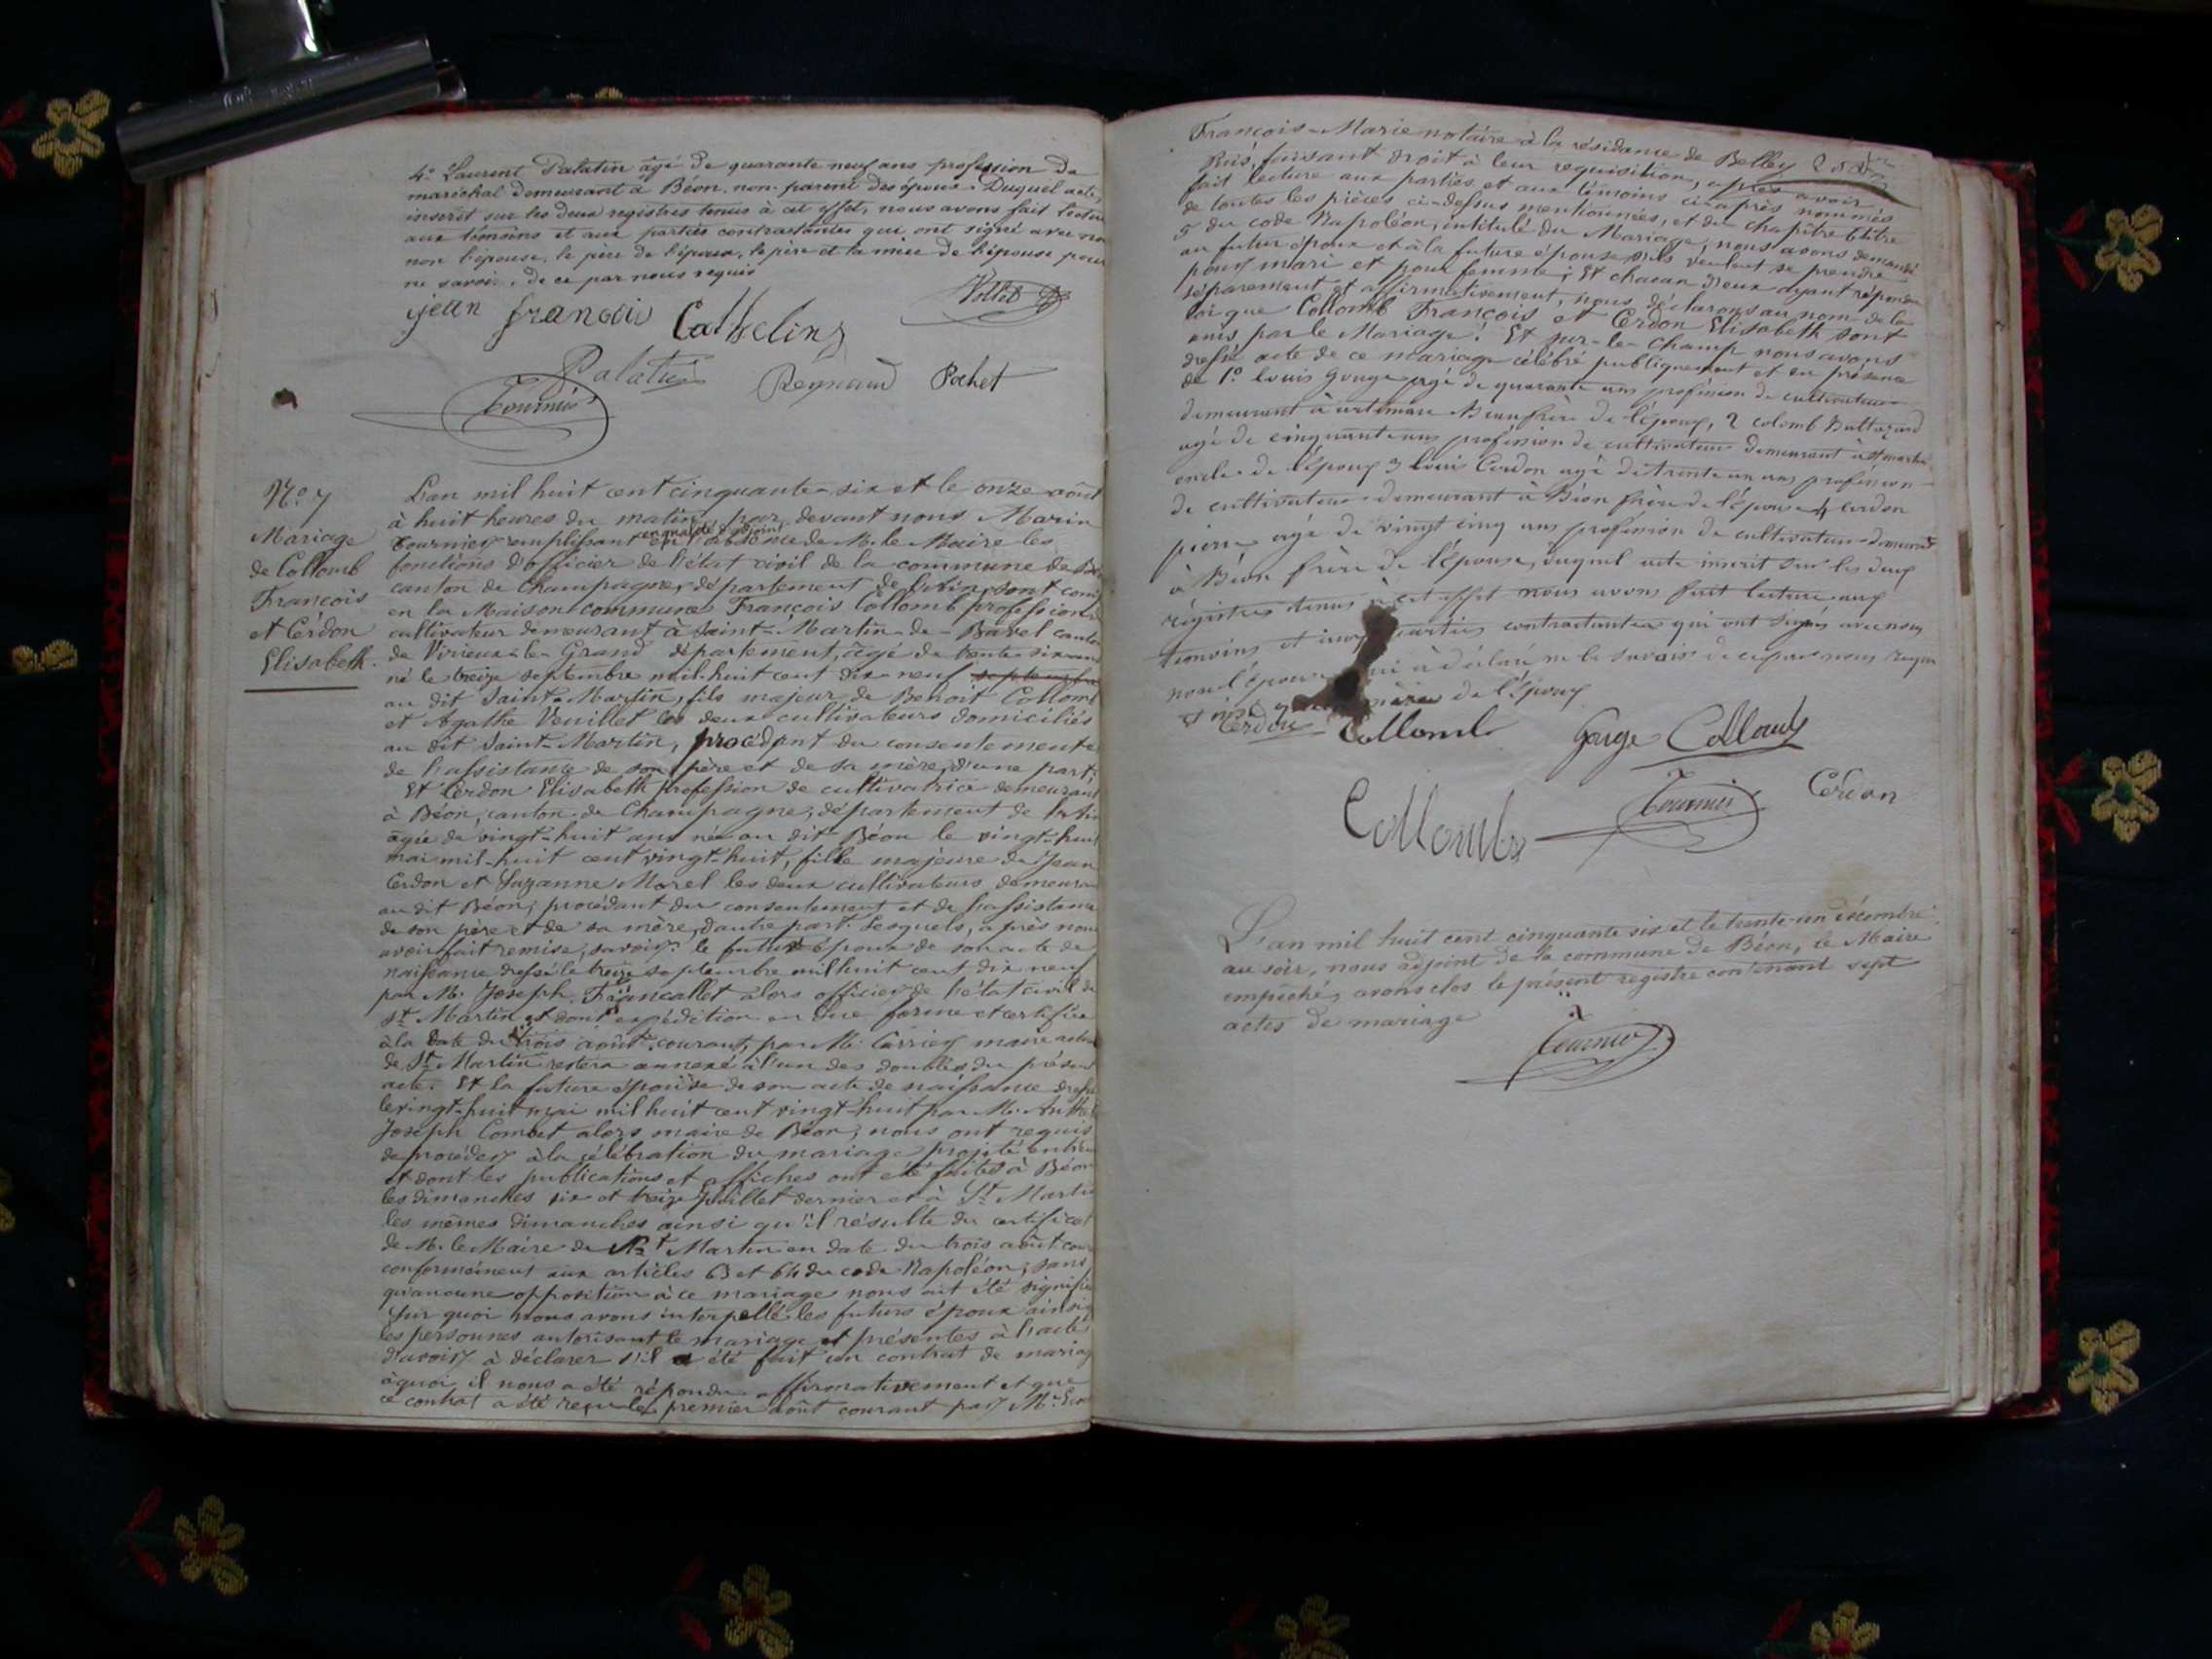 4° Laurent Palatin âgé de quarante neuf ans profession de
maréchal demeurant à Béon, non parent des époux. Duquel acte,
inscrit sur les deux registres tenus à cet effet, nous avons fait lecture
aux témoins et aux parties contractantes qui ont signé avec nous
non l'épouse, le père de l'époux, le père et la mère de l'épouse pour
ne savoir, de ce par nous requis
jean françois Cathelin Pollet
Palatin Reynaud Pochet
Tournier
N° 7
Mariage
de Collomb
François
et Cerdon
Elisabeth.
L'an mil huit cent cinquante-six et le onze août
à huit heures du matin, par devant nous Marin
Tournier remplissant en qualité d'adjoint en l'absence de M. le Maire les
fonctions d'officier de l'état civil de la commune de Béon
canton de Champagne, département de l'Ain, sont comp
en la Maison commune François Collomb profession de
cultivateur demeurant à Saint-Martin-de-Bavel canton
de Virieux-le-Grand département, âgé de trente-six ans
né le treize septembre mil-huit cent dix-neuf septembre
au dit Saint-Martin, fils majeur de Benoit Collomb
et Agathe Veuillet les deux cultivateurs domiciliés
au dit Saint-Martin, procédant du consentement et
de l'assistance de son père et de sa mère, d'une part;
Et Cerdon Elisabeth profession de cultivatrice demeurant
à Béon, canton de Champagne, département de l'Ain
âgée de vingt-huit ans née au dit Béon le vingt-huit
mai mil-huit cent vingt-huit, fille majeure de Jean
Cerdon et Suzanne Morel les deux cultivateurs demeurant
au dit Béon, procédant du consentement et de l'assistance
de son père et de sa mère, d'autre part. Lesquels, après nous
avoir fait remise, savoir: le futur époux de son acte de
naissance dressé le treize septembre mil huit cent dix neuf
par M. Joseph Francallet alors officier de l'état civil de
St Martin et dont expédition en due forme et certifiée
à la date du trois août courant, par M. Carrier maire actuel
de St Martin restera annexé à l'un des doubles du présent
acte. Et la future épouse de son acte de naissance dressé
le vingt-huit mai mil huit cent vingt-huit par M. Anthel
Joseph Combet alors maire de Béon; nous ont requis
de procéder à la célébration du mariage projeté entre eux
et dont les publications et affiches ont été faites à Béon
les dimanches six et treize Juillet dernier et à St Martin
les mêmes dimanches ainsi qu'il résulte du certificat
de M. le Maire de St Martin en date du trois août cour
conformément aux articles 63 et 64 du code Napoléon, sans
qu'aucune opposition à ce mariage nous ait été signifiée
Sur quoi nous avons interpellé les futurs époux ainsi q
les personnes autorisant le mariage et présentes à l'acte
d'avoir à déclarer s'il a été fait un contrat de mariage
à quoi il nous a été répondu affirmativement et que
ce contrat a été reçu le premier août courant par Me
François-Marie notaire à la résidance de Belley
Puis, faisant droit à leur requisition, après avoir
fait lecture aux parties et aux témoins ci-après nommés
de toutes les pièces ci-dessus mentionnées, et du chapitre 6 titre
5 du code Napoléon, intitulé du Mariage, nous avons demandé
au futur époux et à la future épouse s'ils veulent se prendre
pour mari et pour femme; Et chacun d'eux ayant répondu
séparement et affirmativement, nous déclarons au nom de la
loi que Collomb François et Cerdon Elisabeth sont
unis par le Mariage! Et sur-le-champ nous avons
dressé acte de ce mariage célébré publiquement et en présence
de 1° louis Gouge agé de quarante ans profession de cultivateur
demeurant à artemare Beaufrère de l'époux, 2 colomb Baltazard
agé de cinquante ans profession de cultivateur demeurant à St martin
oncle de l'époux 3 louis Cerdon agé de trente un ans profession
de cultivateur demeurant à Béon frère de l'épouse 4 cerdon
pierre agé de vingt cinq ans profession de cultivateur demeurant
à Béon frère de l'épouse, duquel acte inscrit sur les deux
régistres tenus à cet effet nous avons fait lecture aux
temoins et aux parties contractantes qui ont signés avec nous
non l'épouse qui à déclaré ne le savoir de ce par nous requis
mère de l'époux
Cerdon Collomb Gouge Collomb
Collomb Tournier Cerdon
L'an mil huit cent cinquante six et le trente-un décembre
au soir, nous adjoint de la commune de Béon, le Maire
empêché, avons clos le présent registre contenant sept
actes de mariage
Tournier